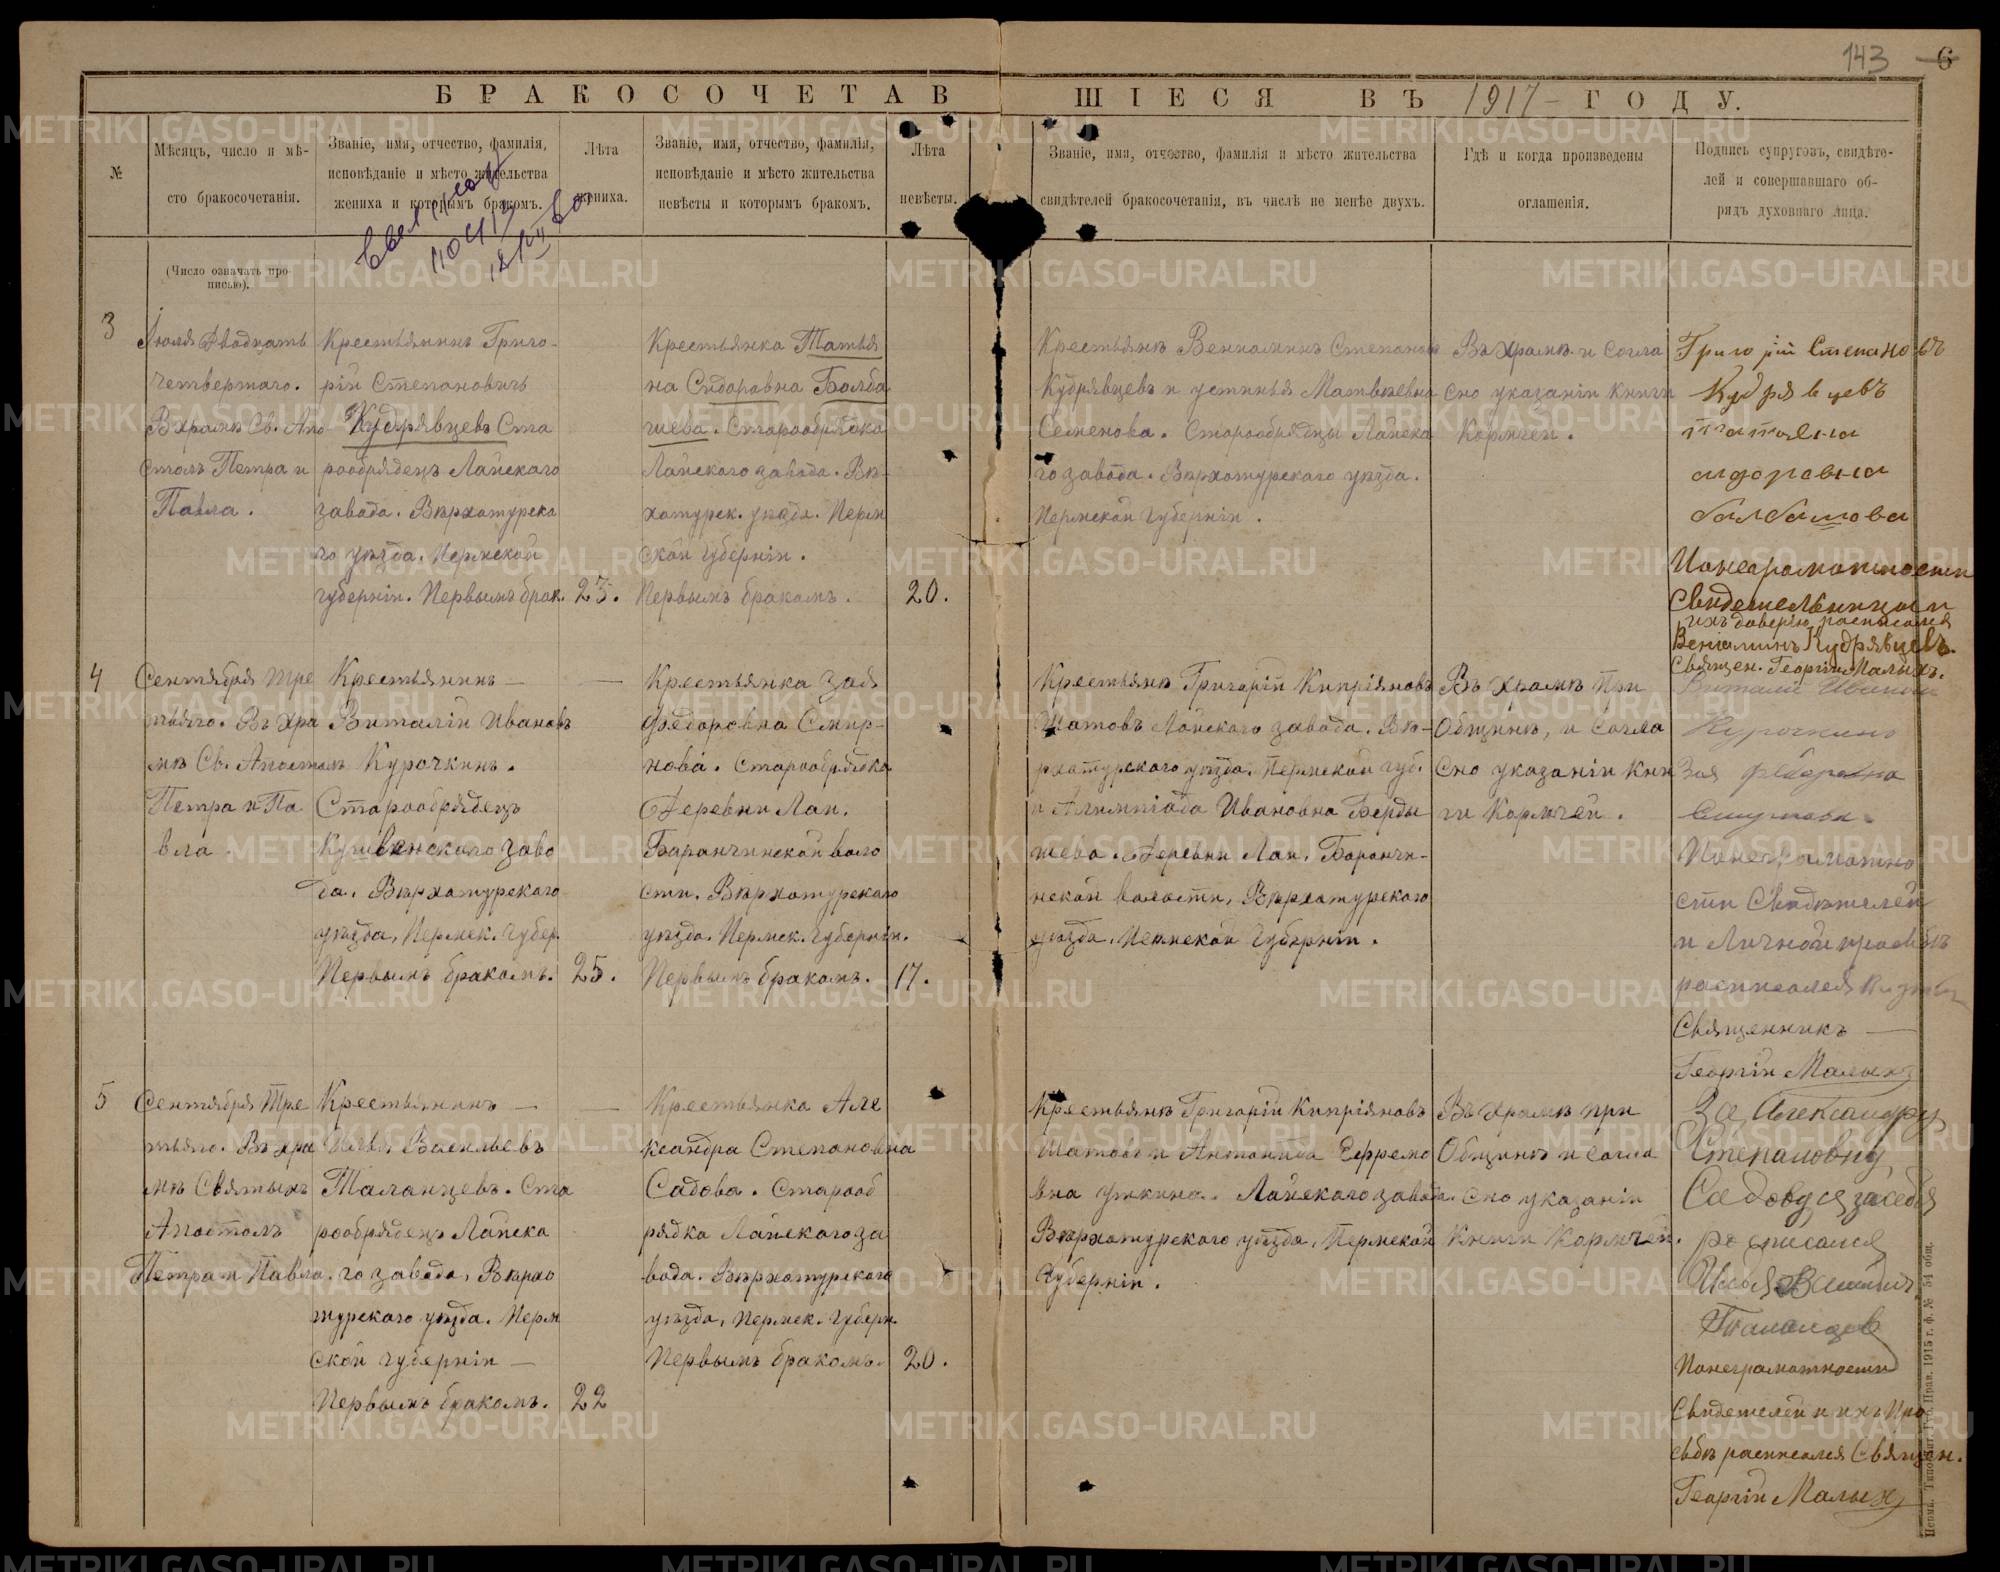 143 6
БРАКОСОЧЕТАВШІЕСЯ ВЪ 1917 ГОДУ.
№
Мѣсяцъ, число и мѣ-
сто бракосочетанія.
Званіе, имя, отчество, фамилія,
исповѣданіе и мѣсто жительства
жениха и которымъ бракомъ.
Лѣта
жениха.
Званіе, имя, отчество, фамилія,
исповѣданіе и мѣсто жительства
невѣсты и которымъ бракомъ.
Лѣта
невѣсты.
Званіе, имя, отчество, фамилія и мѣсто жительства
свидѣтелей бракосочетанія, въ числѣ не менѣе двухъ.
Гдѣ и когда произведены
оглашенія.
Подпись супруговъ, свидѣте-
лей и совершавшаго об-
рядъ духовнаго лица.
(Число означать про-
писью).
3
Іюля Двадцать
четвертаго.
В храмѣ Св. Апо
столъ Петра и
Павла.
Крестьянинъ Григо-
рій Степановичъ
Кудрявцевъ Ста
рообрядецъ Лайскаго
завода. Вѣрхотурска
го уѣзда. Пермской
губерніи. Первымъ брак.
23.
Крестьянка Татья
на Сидоровна Балба
шева. Старообрядка
Лайскаго завода. Вѣ-
хотурск. уѣзда. Перм
ской губерніи.
Первымъ бракомъ.
20.
Крестьянѣ Веніаминъ Степанов
Кудрявцевъ и устинья Матвѣевна
Семенова. Старообрядцы Лайска
го завода. Вѣрхотурскаго уѣзда.
Пермской Губерніи.
Въ храмѣ и Согла
сно указаніи книги
Кормчей.
Григорій Степановъ
Кудрявцевъ
Татьяна
сидоровна
балбашова
Понеграмотности
Свидетельницы и
ихъ доверію росписался
Веніаминъ Кудрявцевъ.
Священ. Георгій Малыхъ.
4
Сентября Тре
тьяго. Въ Хра
мѣ Св. Апостолъ
Петра и Па
вла.
Крестьянинъ
Виталій Ивановъ
Курочкинъ.
Старообрядецъ
Кушвинскаго заво
да. Вѣрхотурскаго
уѣзда, Пермск. Губер.
Первымъ бракомъ.
25.
Крестьянка Зоя
Федоровна Смир-
нова. Старообрядка
Деревни Лаи.
Баранчинской воло
сти. Вѣрхотурскаго
уѣзда. Пермск. Губерніи.
Первымъ бракомъ.
17.
Крестьянѣ Григорій Кипріяновъ
Шатовъ Лайскаго завода. Вѣ-
рхотурскаго уѣзда. Пермской губ.
и Алимпіада Ивановна Берды
шева. Деревни Лаи. Баранчи-
нской волости, Вѣрхотурскаго
уѣзда. Пермской Губерніи.
Въ храмѣ При
Общинѣ, и Согла
сно указаніи кни
ги Кормчей.
Виталий Иванов
Курочкинъ
Зоя федоровна
Понеграмотно
сти Свидѣтелей
и Личной просьбѣ
росписался
Священникъ
Георгій Малыхъ
5
Сентября Тре
тьяго. Въ хра
мѣ Святыхъ
Апостолъ
Петра и Павла.
Крестьянинъ
Илья Васильевъ
Таланцевъ. Ста
рообрядецъ Лайска
го завода, Вѣрхо
турскаго уѣзда. Перм
ской губерніи
Первымъ бракомъ.
22
Крестьянка Але
ксандра Степановна
Садова. Старооб
рядка Лайскаго за
вода. Вѣрхотурскаго
уѣзда, Пермск. Губерн.
Первымъ бракомъ.
20.
Крестьянѣ Григорій Кипріяновъ
Шатовъ и Антонида Ефремо
вна уткина. Лайскаго завода.
Вѣрхотурскаго уѣзда, Пермской
Губерніи.
Въ храмѣ при
Общинѣ и согла
сно указаніи
Книги Кормчей.
За Александру
Степановну
Садову и за себя
росписался
Илья
Таланцев
Понеграмотности
Свидетелей и ихъ Про
сьбѣ расписался Священ.
Георгій Малыхъ
METRIKI.GASO-URAL.RU